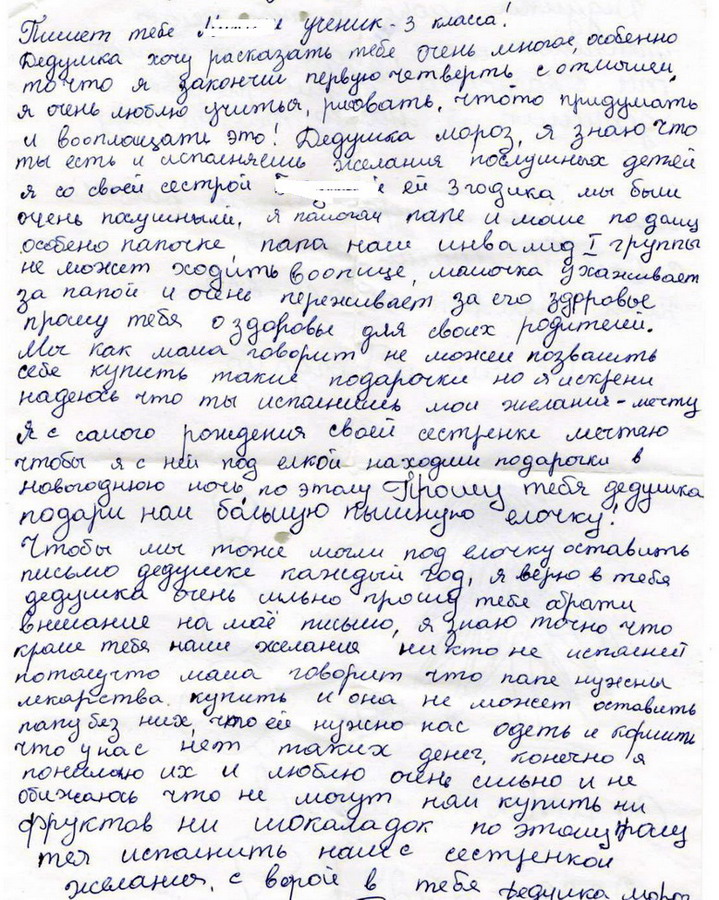 Пишет тебе ученик - 3 класса!
Дедушка хочу расказать тебе очень многое, особенно
то что я закончил первую четверть с отличием,
я очень люблю учиться, рисовать, что то придумать
и вооплощать это! Дедушка мороз, я знаю что
ты есть и исполняешь желания послушных детей
я со своей сестрой ей 3 годика мы были
очень послушными, я помогаю папе и маме по дому
особено папочке, папа наш инвалид I группы
не может ходить воопще, мамочка ухаживает
за папой и очень переживает за его здоровье
прошу тебя о здоровье для своих родителей.
Мы как мама говорит не можем позволить
себе купить такие подарочки но я искрени
надеюсь что ты исполнишь мои желания - мечту
Я с самого рождения своей сестренки мечтаю
чтобы я с ней под елкой находили подарочки в
новогоднюю ночь, по этому Прошу тебя дедушка
подари нам большую пышную елочку!
Чтобы мы тоже могли под елочку оставить
письмо дедушке каждый год, я верю в тебя
дедушка очень сильно прошу тебе обрати
внимание на моё письмо, я знаю точно что
кроме тебя наши желания ни кто не исполнит
потомучто мама говорит что папе нужны
лекарства купить и она не может оставить
папу без них, что ей нужно нас одеть и кормить
что у нас нет таких денег, конечно я
понимаю их и люблю очень сильно и не
обижаюсь что не могут нам купить ни
фруктов ни шокаладок по этому прошу
тея исполнить наше с сестренкой
желания, с верой в тебя дедушка мороз